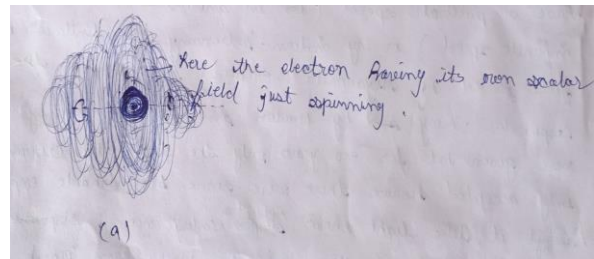 Here the electron having its own scalar
field just spinning.
(a)